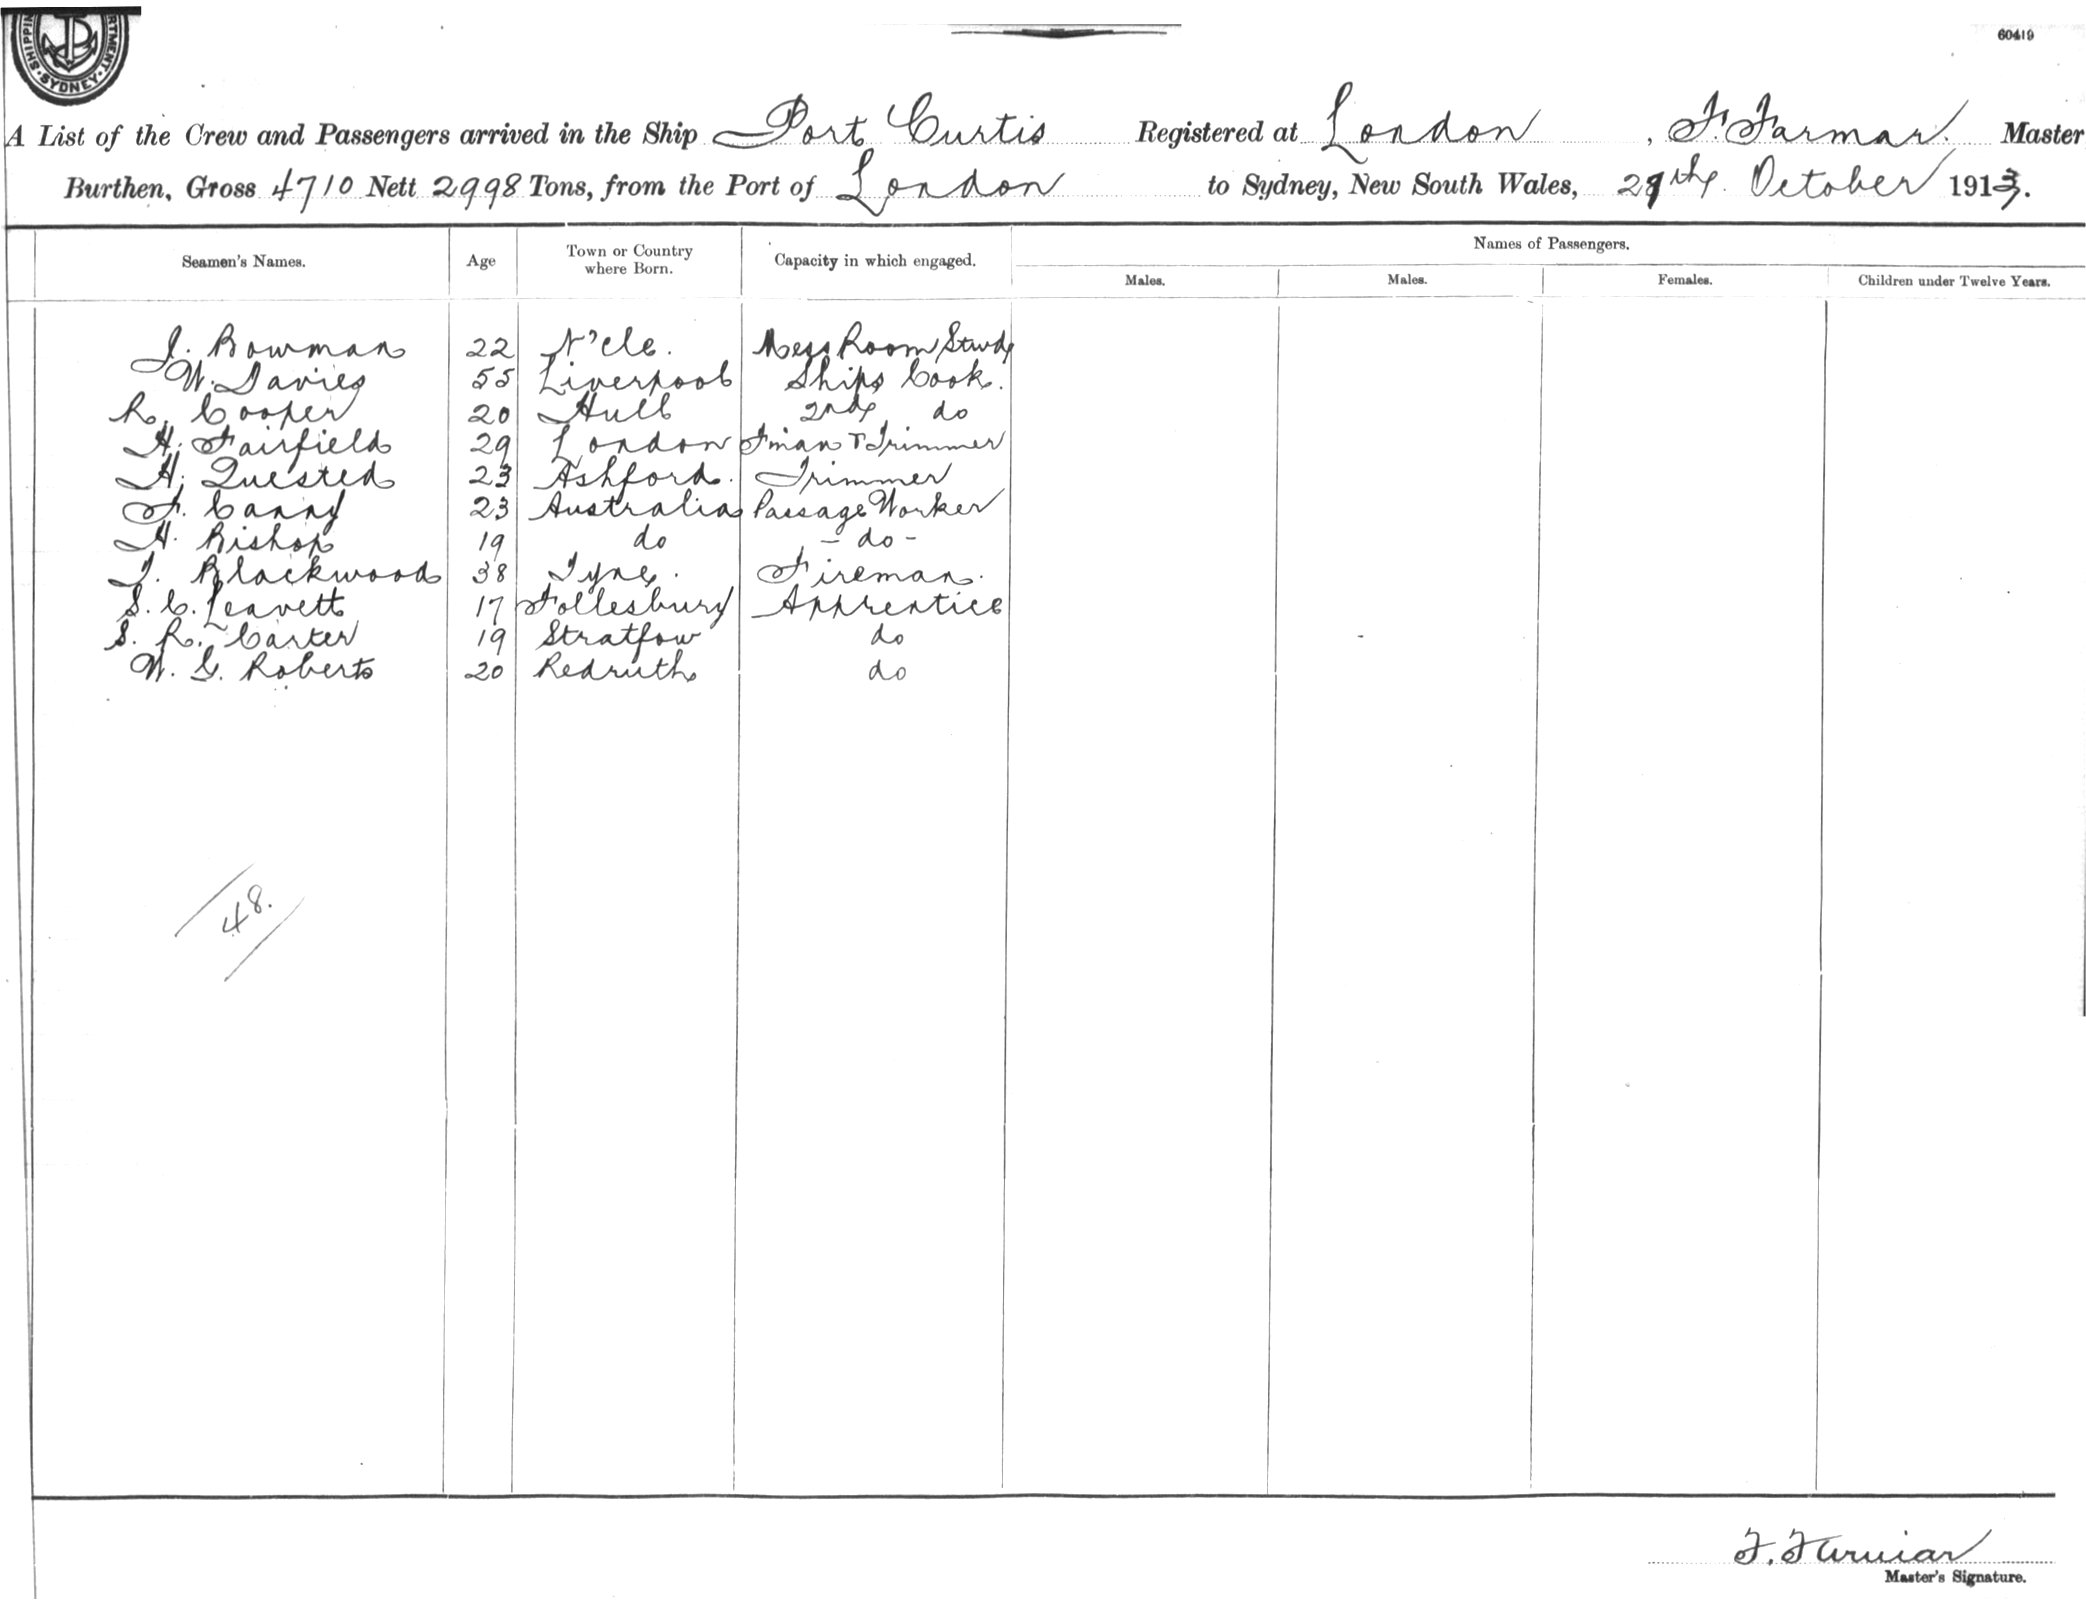 SHIPPIN RTMENT. SYDNEY
60419
A List of the Crew and Passengers arrived in the Ship Port Curtis Registered at London , F. Farmar. Master
Burthen, Gross 4710 Nett 2998 Tons, from the Port of London to Sydney, New South Wales, 29th October 1913.
Seamen's Names. Age Town or Country where Born. Capacity in which engaged. Names of Passengers.
Males. Males. Females. Children under Twelve Years.
J. Bowman 22 N'cle. Mess Room Stwd
W. Davies 55 Liverpool Ships Cook.
R. Cooper 20 Hull 2nd do
H. Fairfield 29 London F'man & Trimmer
H. Quested 23 Ashford. Trimmer
F. Canny 23 Australia Passage Worker
H. Bishop 19 do - do -
J. Blackwood 38 Tyne. Fireman.
S. C. Leavett 17 Tollesbury Apprentice
S. R. Carter 19 Stratfow do
W. G. Roberts 20 Redruth do
48.
F. Farmar
Master's Signature.